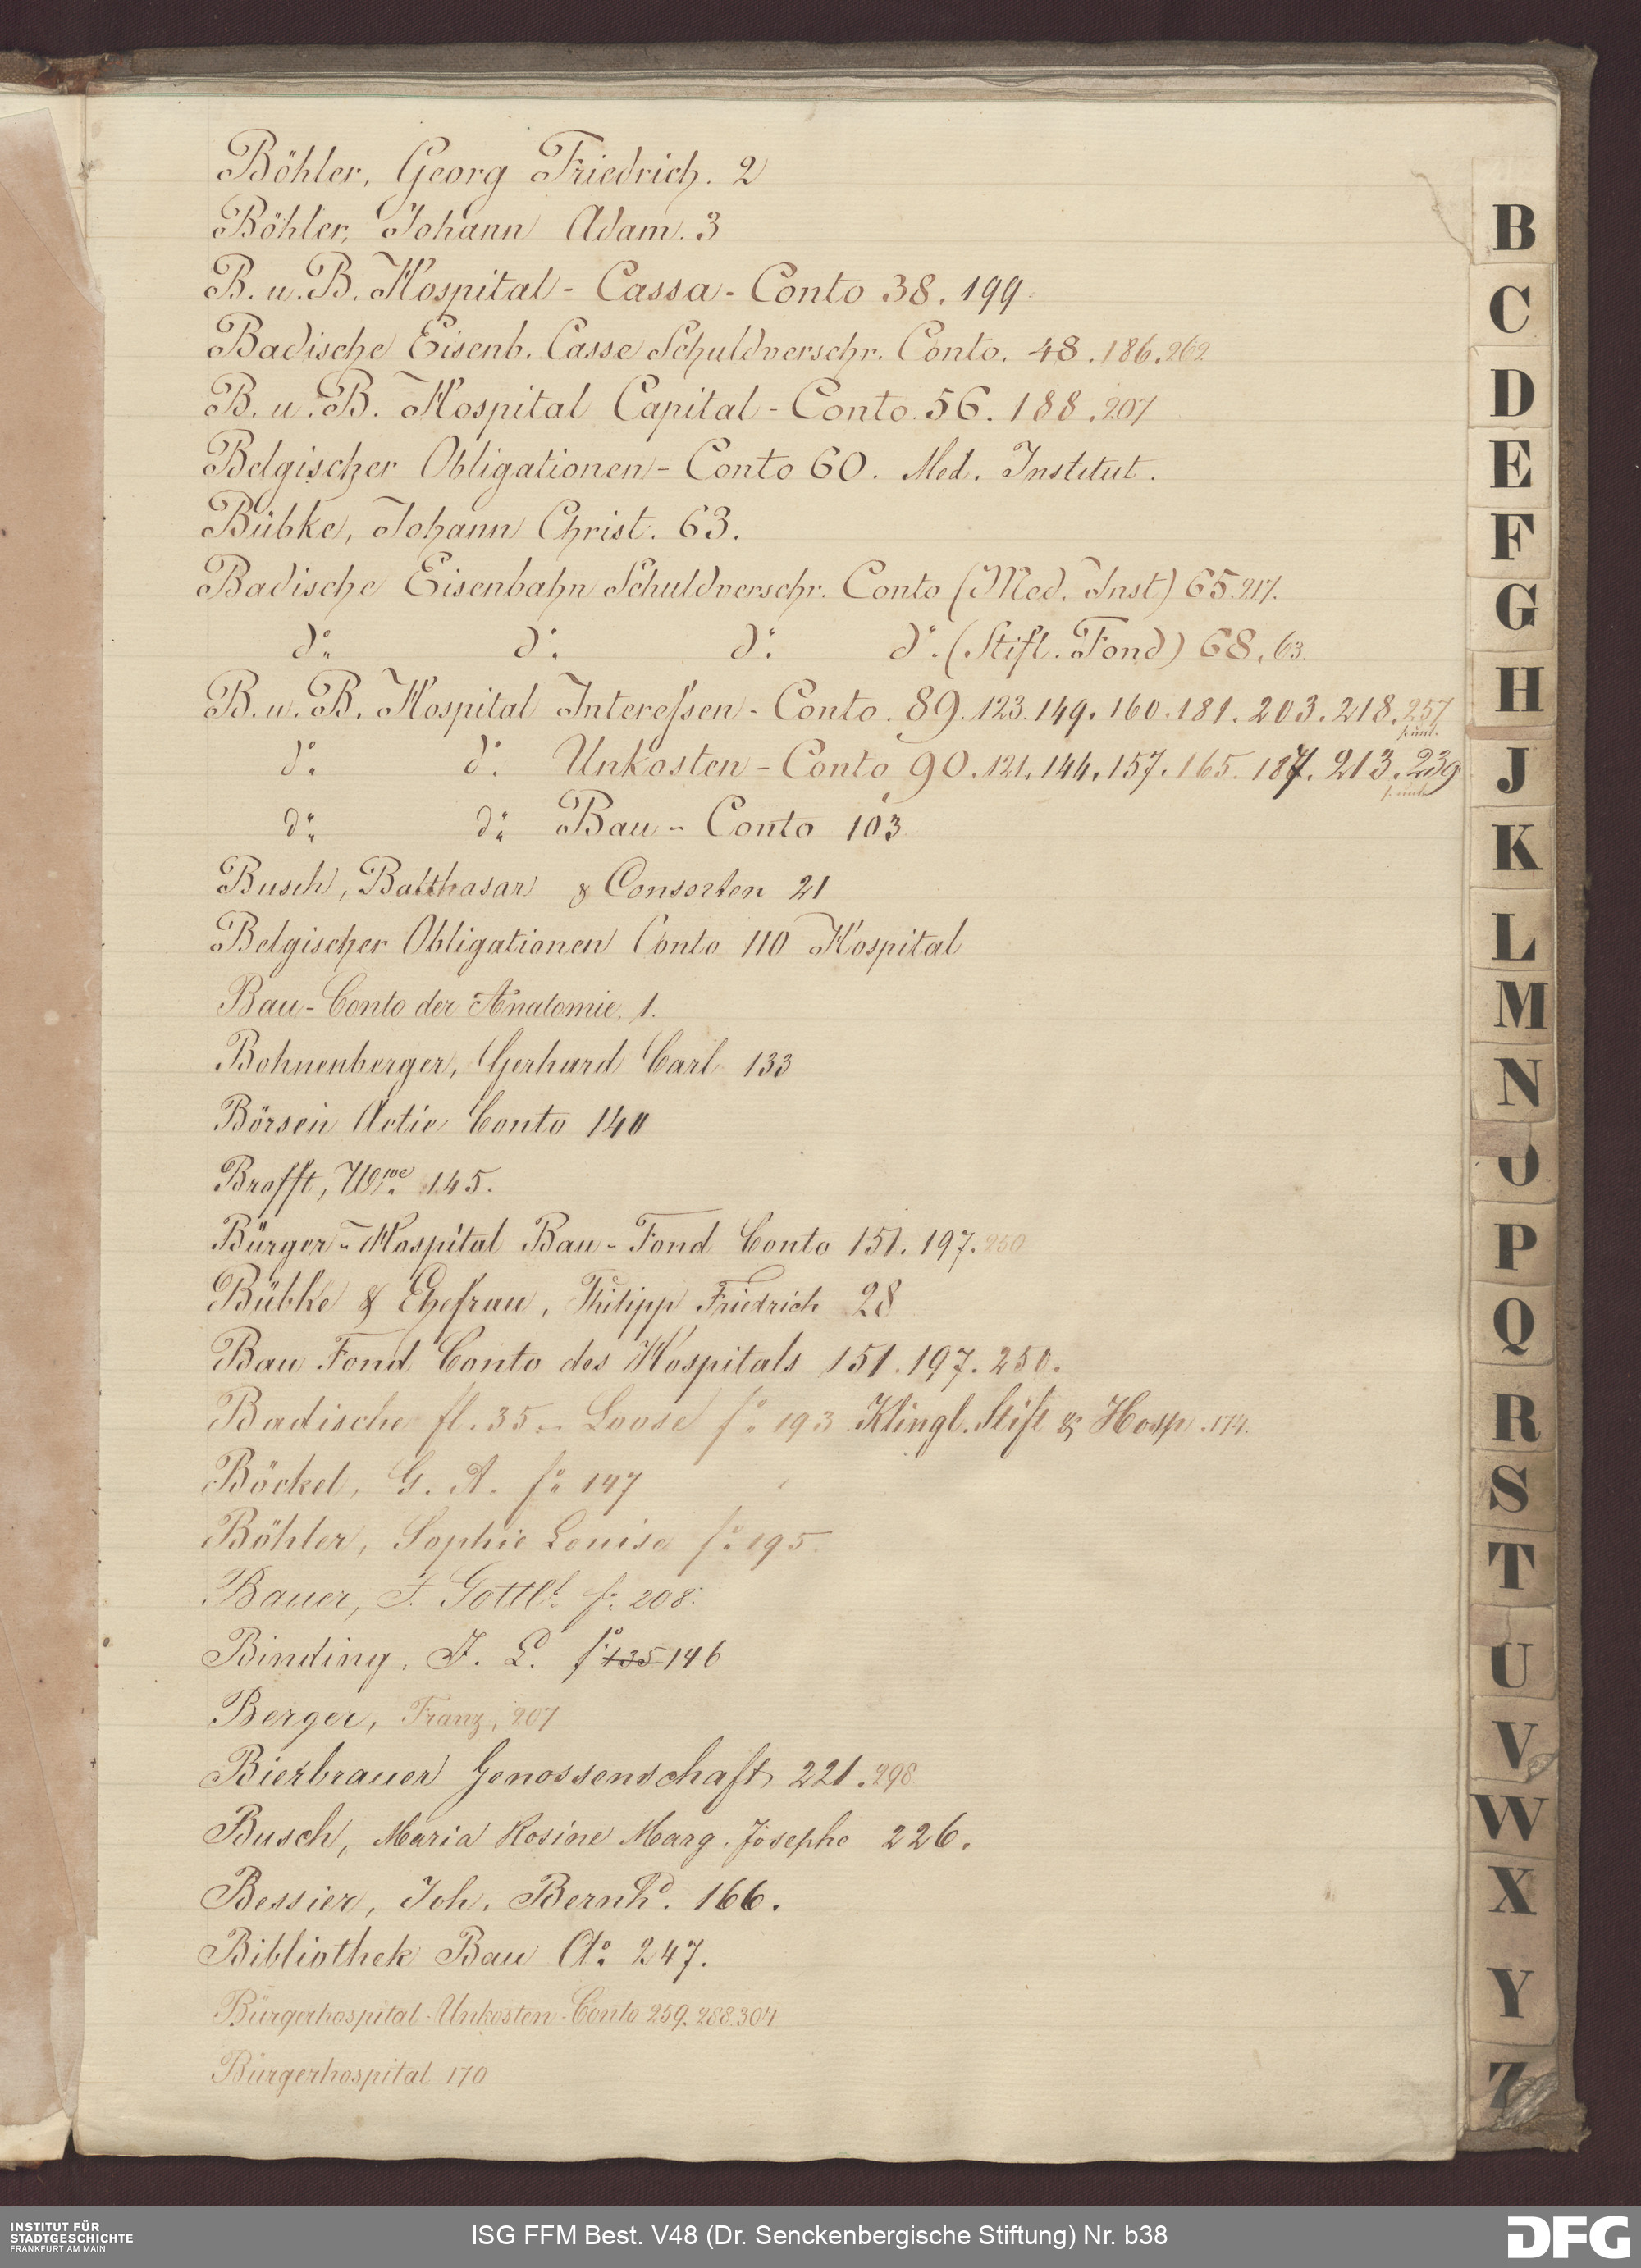 Böhler, Georg Friedrich. 2
Böhler, Johann Adam. 3
B. u. B. Hospital - Cassa - Conto 38. 199
Badische Eisenb. Casse Schuldverschr. Conto. 48. 186. 262
B. u. B. Hospital Capital - Conto. 56. 188. 207
Belgischer Obligationen - Conto 60. Med. Institut.
Bübke, Johann Christ. 63.
Badische Eisenbahn Schuldverschr. Conto (Med. Inst) 65. 217.
do do do do (Stift. Fond) 68. 63.
B. u. B. Hospital Interessen - Conto. 89. 123. 149. 160. 181. 203. 218. 257
do do Unkosten - Conto 90. 121. 144. 157. 165. 187. 213. 239
do do Bau - Conto 103
Busch, Balthasar & Consorten 21
Belgischer Obligationen Conto 110 Hospital
Bau-Conto der Anatomie. 1.
Bohnenberger, Gerhard Carl 133
Börsen Actie Conto 140
Brofft, Wwe 145.
Bürger-Hospital Bau-Fond Conto 151. 197. 250
Bübke & Ehefrau, Philipp Friedrich 28
Bau Fond Conto des Hospitals 151. 197. 250.
Badische fl. 35.- Loose fo 193 Klingl. Stift & Hosp. 174.
Böckel, G. A. fo 147
Böhler, Sophie Louise fo 195.
Bauer, J. Gottl. fo 208.
Binding, J. L. fo 135 146
Berger, Franz, 207
Bierbrauer Genossenschaft 221. 298.
Busch, Maria Rosine Marg. Josephe 226.
Bessier, Joh. Bernhd. 166.
Bibliothek Bau Cto 247.
Bürgerhospital-Unkosten-Conto 259. 288. 304
Bürgerhospital 170
B
C
D
E
F
G
H
J
K
L
M
N
O
P
Q
R
S
T
U
V
W
X
Y
Z
INSTITUT FÜR
STADTGESCHICHTE
FRANKFURT AM MAIN
ISG FFM Best. V48 (Dr. Senckenbergische Stiftung) Nr. b38
DFG